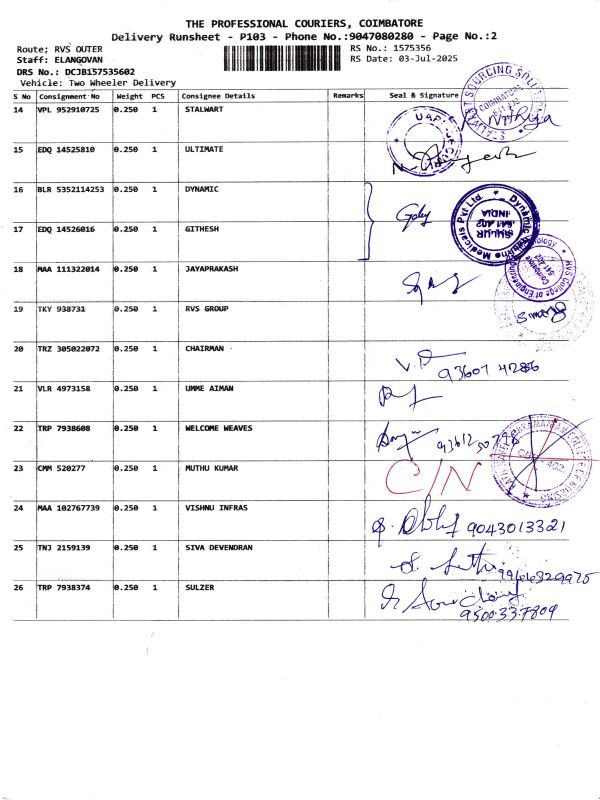 THE PROFESSIONAL COURIERS, COIMBATORE
Delivery Runsheet - P103 - Phone No.:9047080280 - Page No.:2
Route; RVS OUTER RS No.: 1575356
Staff: ELANGOVAN RS Date: 03-Jul-2025
DRS No.: DCJB157535602
Vehicle: Two Wheeler Delivery
S No Consignment No Weight PCS Consignee Details Remarks Seal & Signature
14 VPL 952910725 0.250 1 STALWART
Nithya
15 EDQ 14525810 0.250 1 ULTIMATE
16 BLR 5352114253 0.250 1 DYNAMIC
Dynamic Medicals Pvt Ltd.
SULUR
641 402
INDIA
17 EDQ 14526016 0.250 1 GITHESH
18 MAA 111322014 0.250 1 JAYAPRAKASH
RVS College of Engineering
19 TKY 938731 0.250 1 RVS GROUP
20 TRZ 305022072 0.250 1 CHAIRMAN
93607 41286
21 VLR 4973158 0.250 1 UMME AIMAN
22 TRP 7938608 0.250 1 WELCOME WEAVES
23 CMM 520277 0.250 1 MUTHU KUMAR
C/N
24 MAA 102767739 0.250 1 VISHNU INFRAS
9043013321
25 TNJ 2159139 0.250 1 SIVA DEVENDRAN
26 TRP 7938374 0.250 1 SULZER
9500337809